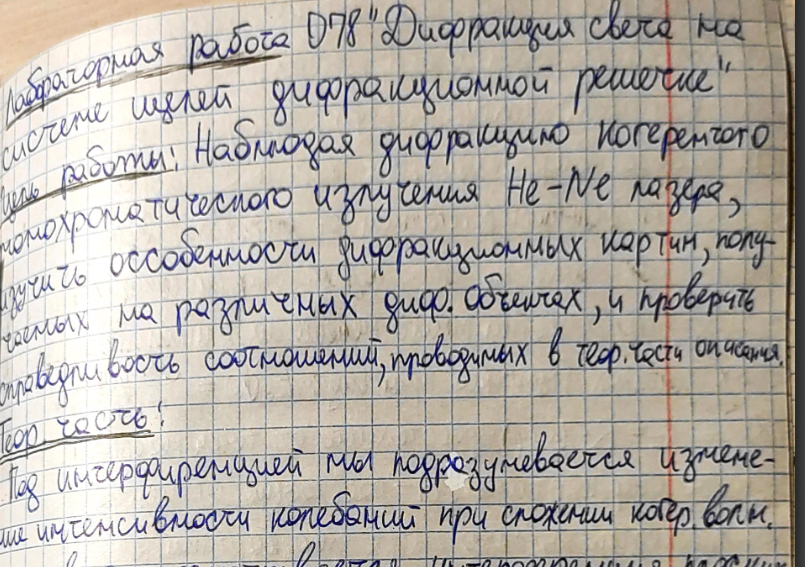 Лабораторная работа О78 "Дифракция света на
системе щелей дифракционной решетке"
Цель работы: Наблюдая дифракцию когерентного
монохроматического излучения He-Ne лазера,
изучить оссобенности дифракционных картин, полу-
чаемых на различных диф. объектах, и проверить
справедливость соотношений, проводимых в теор. части описания.
Теор часть:
Под интерфиренцией мы подразумевается измене-
ние интенсивности колебаний при сложении когер. волн.